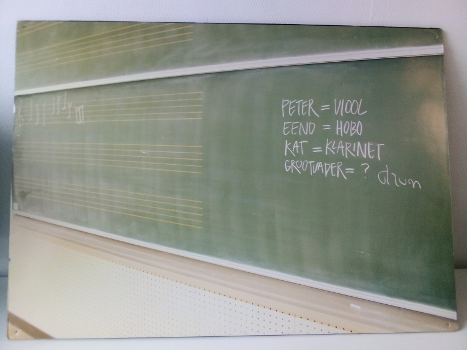 PETER = VIOOL
EEND = HOBO
KAT = KLARINET
GROOTVADER = ? drum